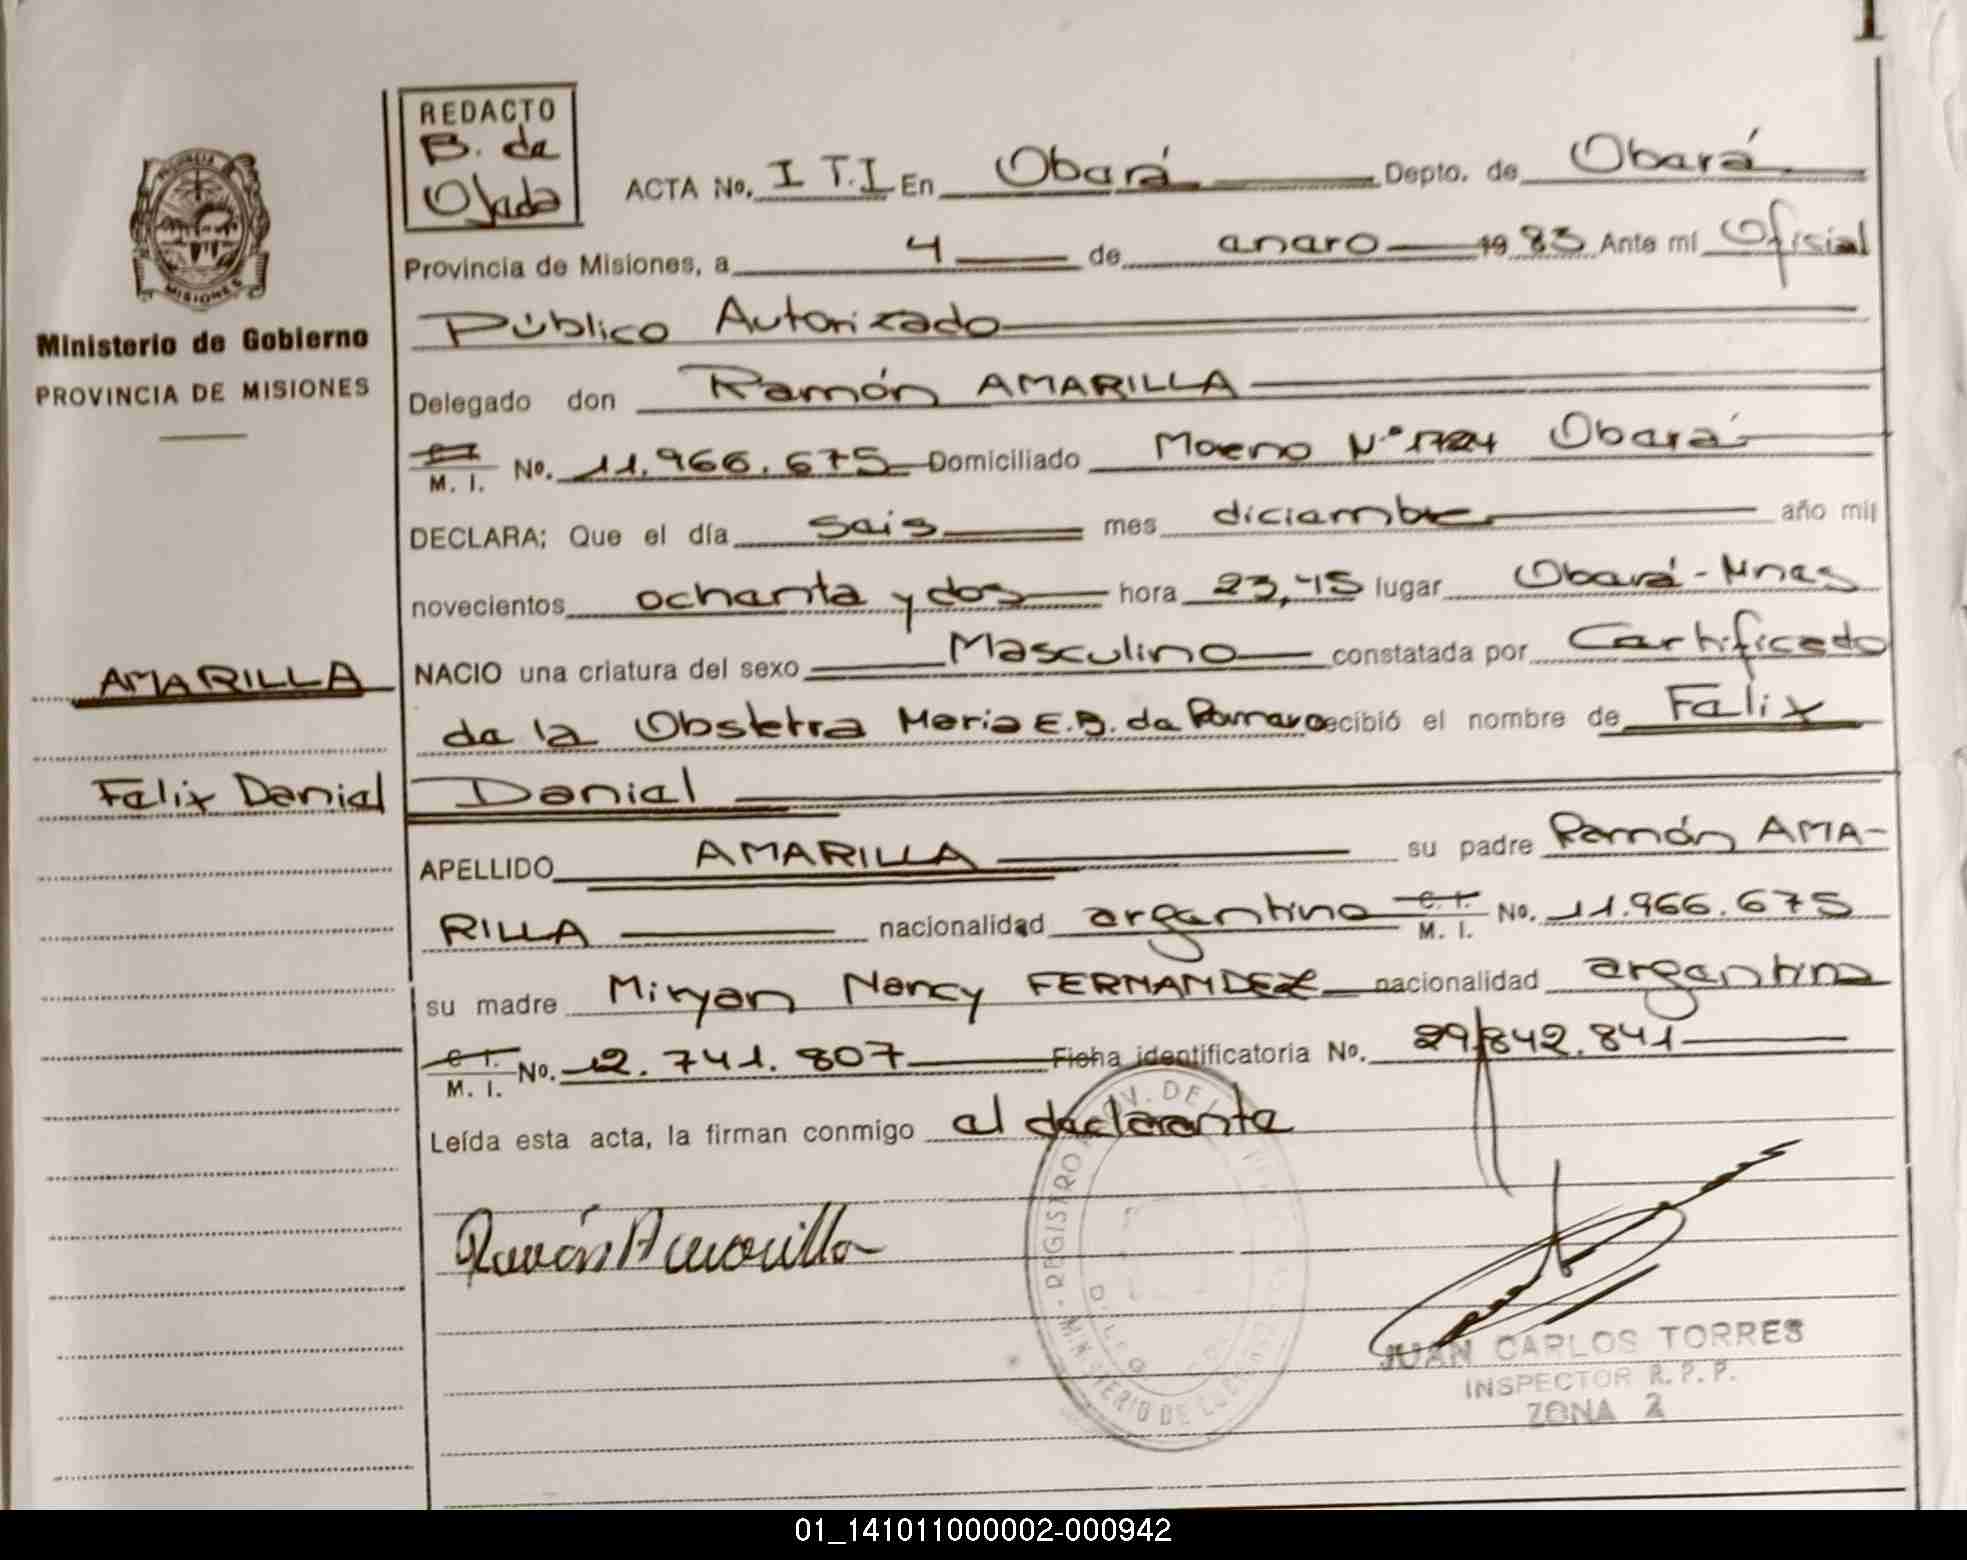 1
REDACTO
B. de
Ojeda
PROVINCIA
MISIONES
Ministerio de Gobierno
PROVINCIA DE MISIONES
AMARILLA
Felix Daniel
ACTA No. I T.I En Oberá Depto. de Oberá
Provincia de Misiones, a 4 de enero 1983 Ante mí Oficial
Público Autorizado
Delegado don Ramón AMARILLA
C.I. M. I. No. 11.966.675 Domiciliado Moreno N° 1724 Oberá
DECLARA; Que el día seis mes diciembre año mil
novecientos ochenta y dos hora 23,45 lugar Oberá - Mnes
NACIO una criatura del sexo Masculino constatada por Certificado
de la Obstetra Maria E. B. de Romero recibió el nombre de Felix
Daniel
APELLIDO AMARILLA su padre Ramón AMA-
RILLA nacionalidad argentino C. I. M. I. No. 11.966.675
su madre Miryan Nancy FERNANDEZ nacionalidad argentina
C I. M. I. No. 12.741.807 Ficha identificatoria No. 29.842.841
Leída esta acta, la firman conmigo el declarante
Ramón Amarilla
REGISTRO PROV. DE
MINISTERIO DE
JUAN CARLOS TORRES
INSPECTOR R. P. P.
ZONA 2
01_141011000002-000942